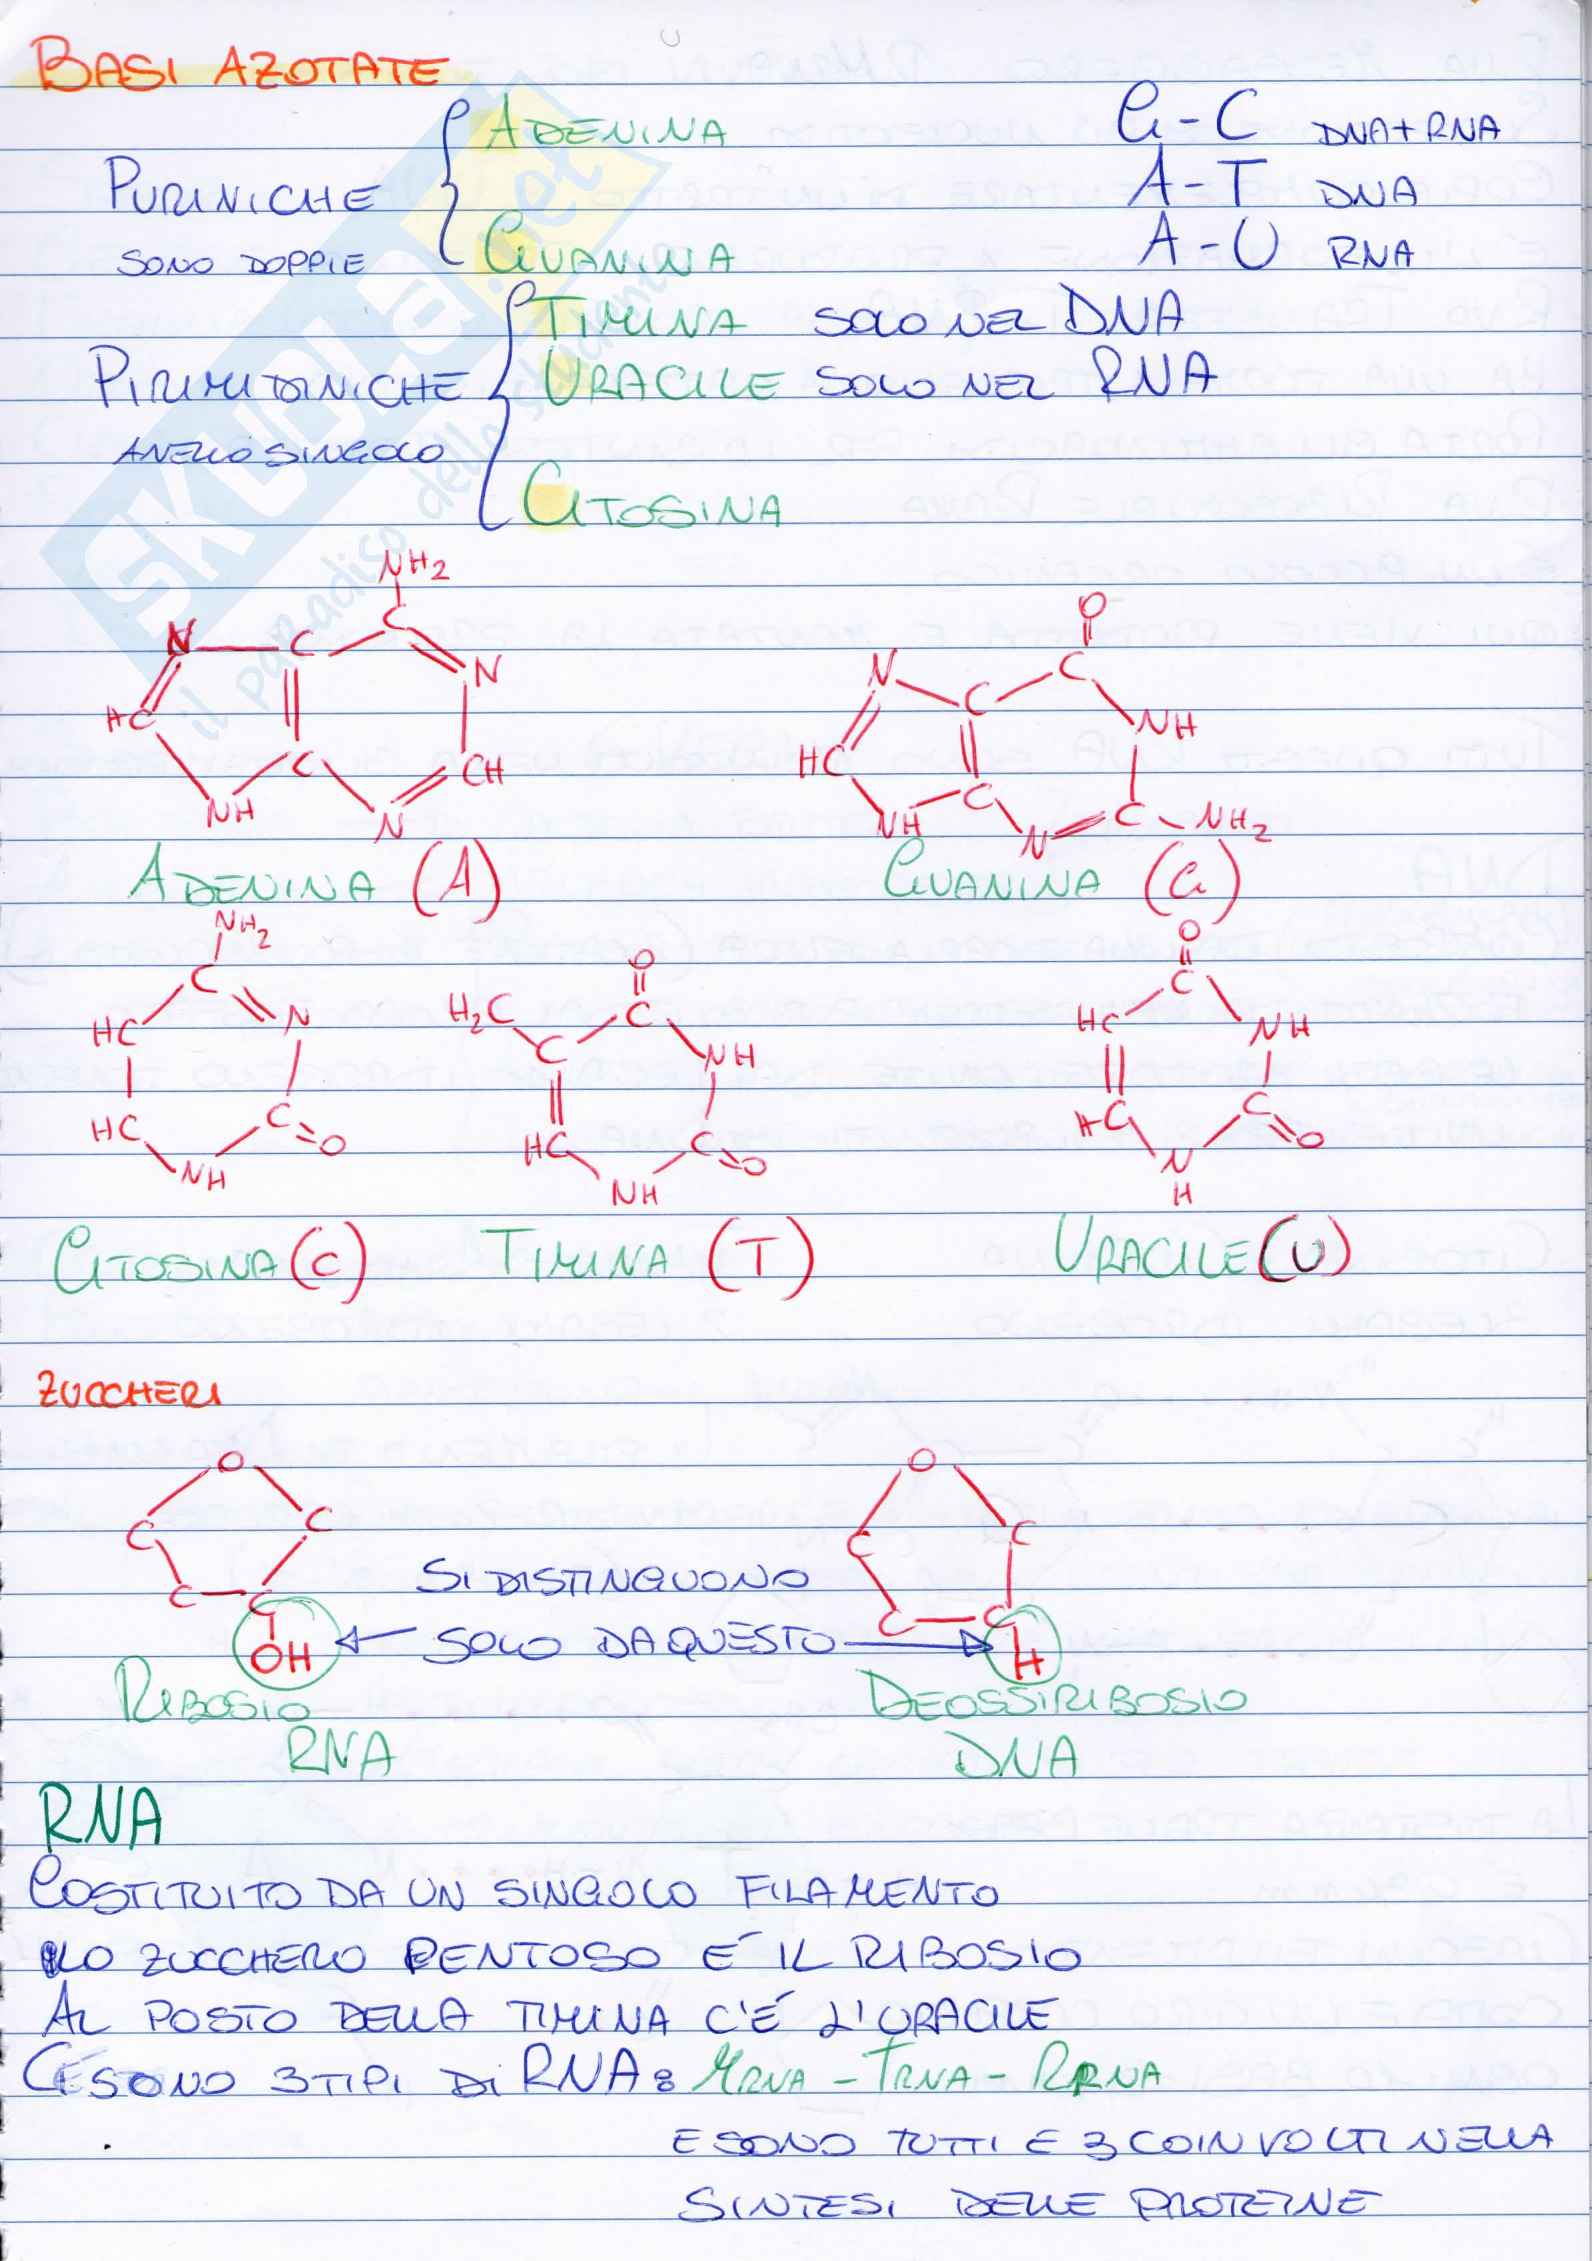 BASI AZOTATE
ADENINA
G-C DNA+RNA
PURINICHE
A-T DNA
SONO DOPPIE
GUANINA
A-U RNA
TIMINA SOLO NEL DNA
PIRIMIDINICHE
URACILE SOLO NEL RNA
ANELLO SINGOLO
CITOSINA
SKUOLA.net
il paradiso dello studente
NH2
N C C N
HC
C CH
NH N
O
N C C
NH
HC
NH C N C NH2
ADENINA (A)
GUANINA (G)
NH2
C
HC N
HC C=O
NH
O
H2C C
C NH
HC C=O
NH
O
C
HC NH
HC C=O
N
H
CITOSINA (C) TIMINA (T) URACILE (U)
ZUCCHERI
O
C C
C C
OH
O
C C
C C
H
SI DISTINGUONO
SOLO DA QUESTO
RIBOSIO
RNA
DEOSSIRIBOSIO
DNA
RNA
COSTITUITO DA UN SINGOLO FILAMENTO
LO ZUCCHERO PENTOSO E' IL RIBOSIO
AL POSTO DELLA TIMINA C'É L'URACILE
CE SONO 3 TIPI DI RNA: MRNA - TRNA - RRNA
E SONO TUTTI E 3 COINVOLTI NELLA
SINTESI DELLE PROTEINE